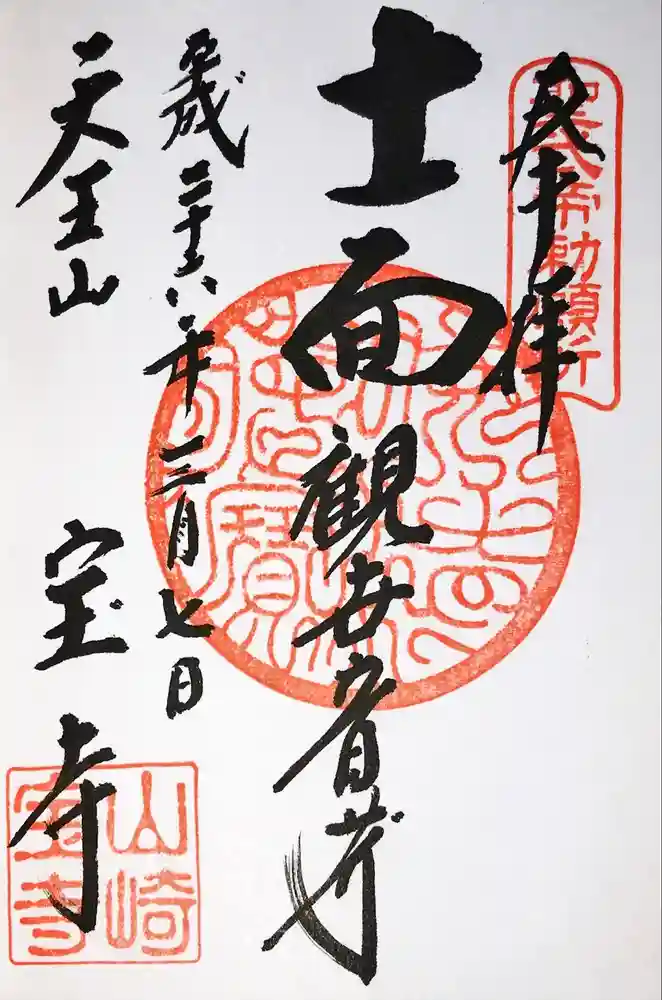 奉拝
聖武帝勅願所
十一面観世音菩薩
平成二十六年三月七日
天王山
宝寺
山崎
宝寺